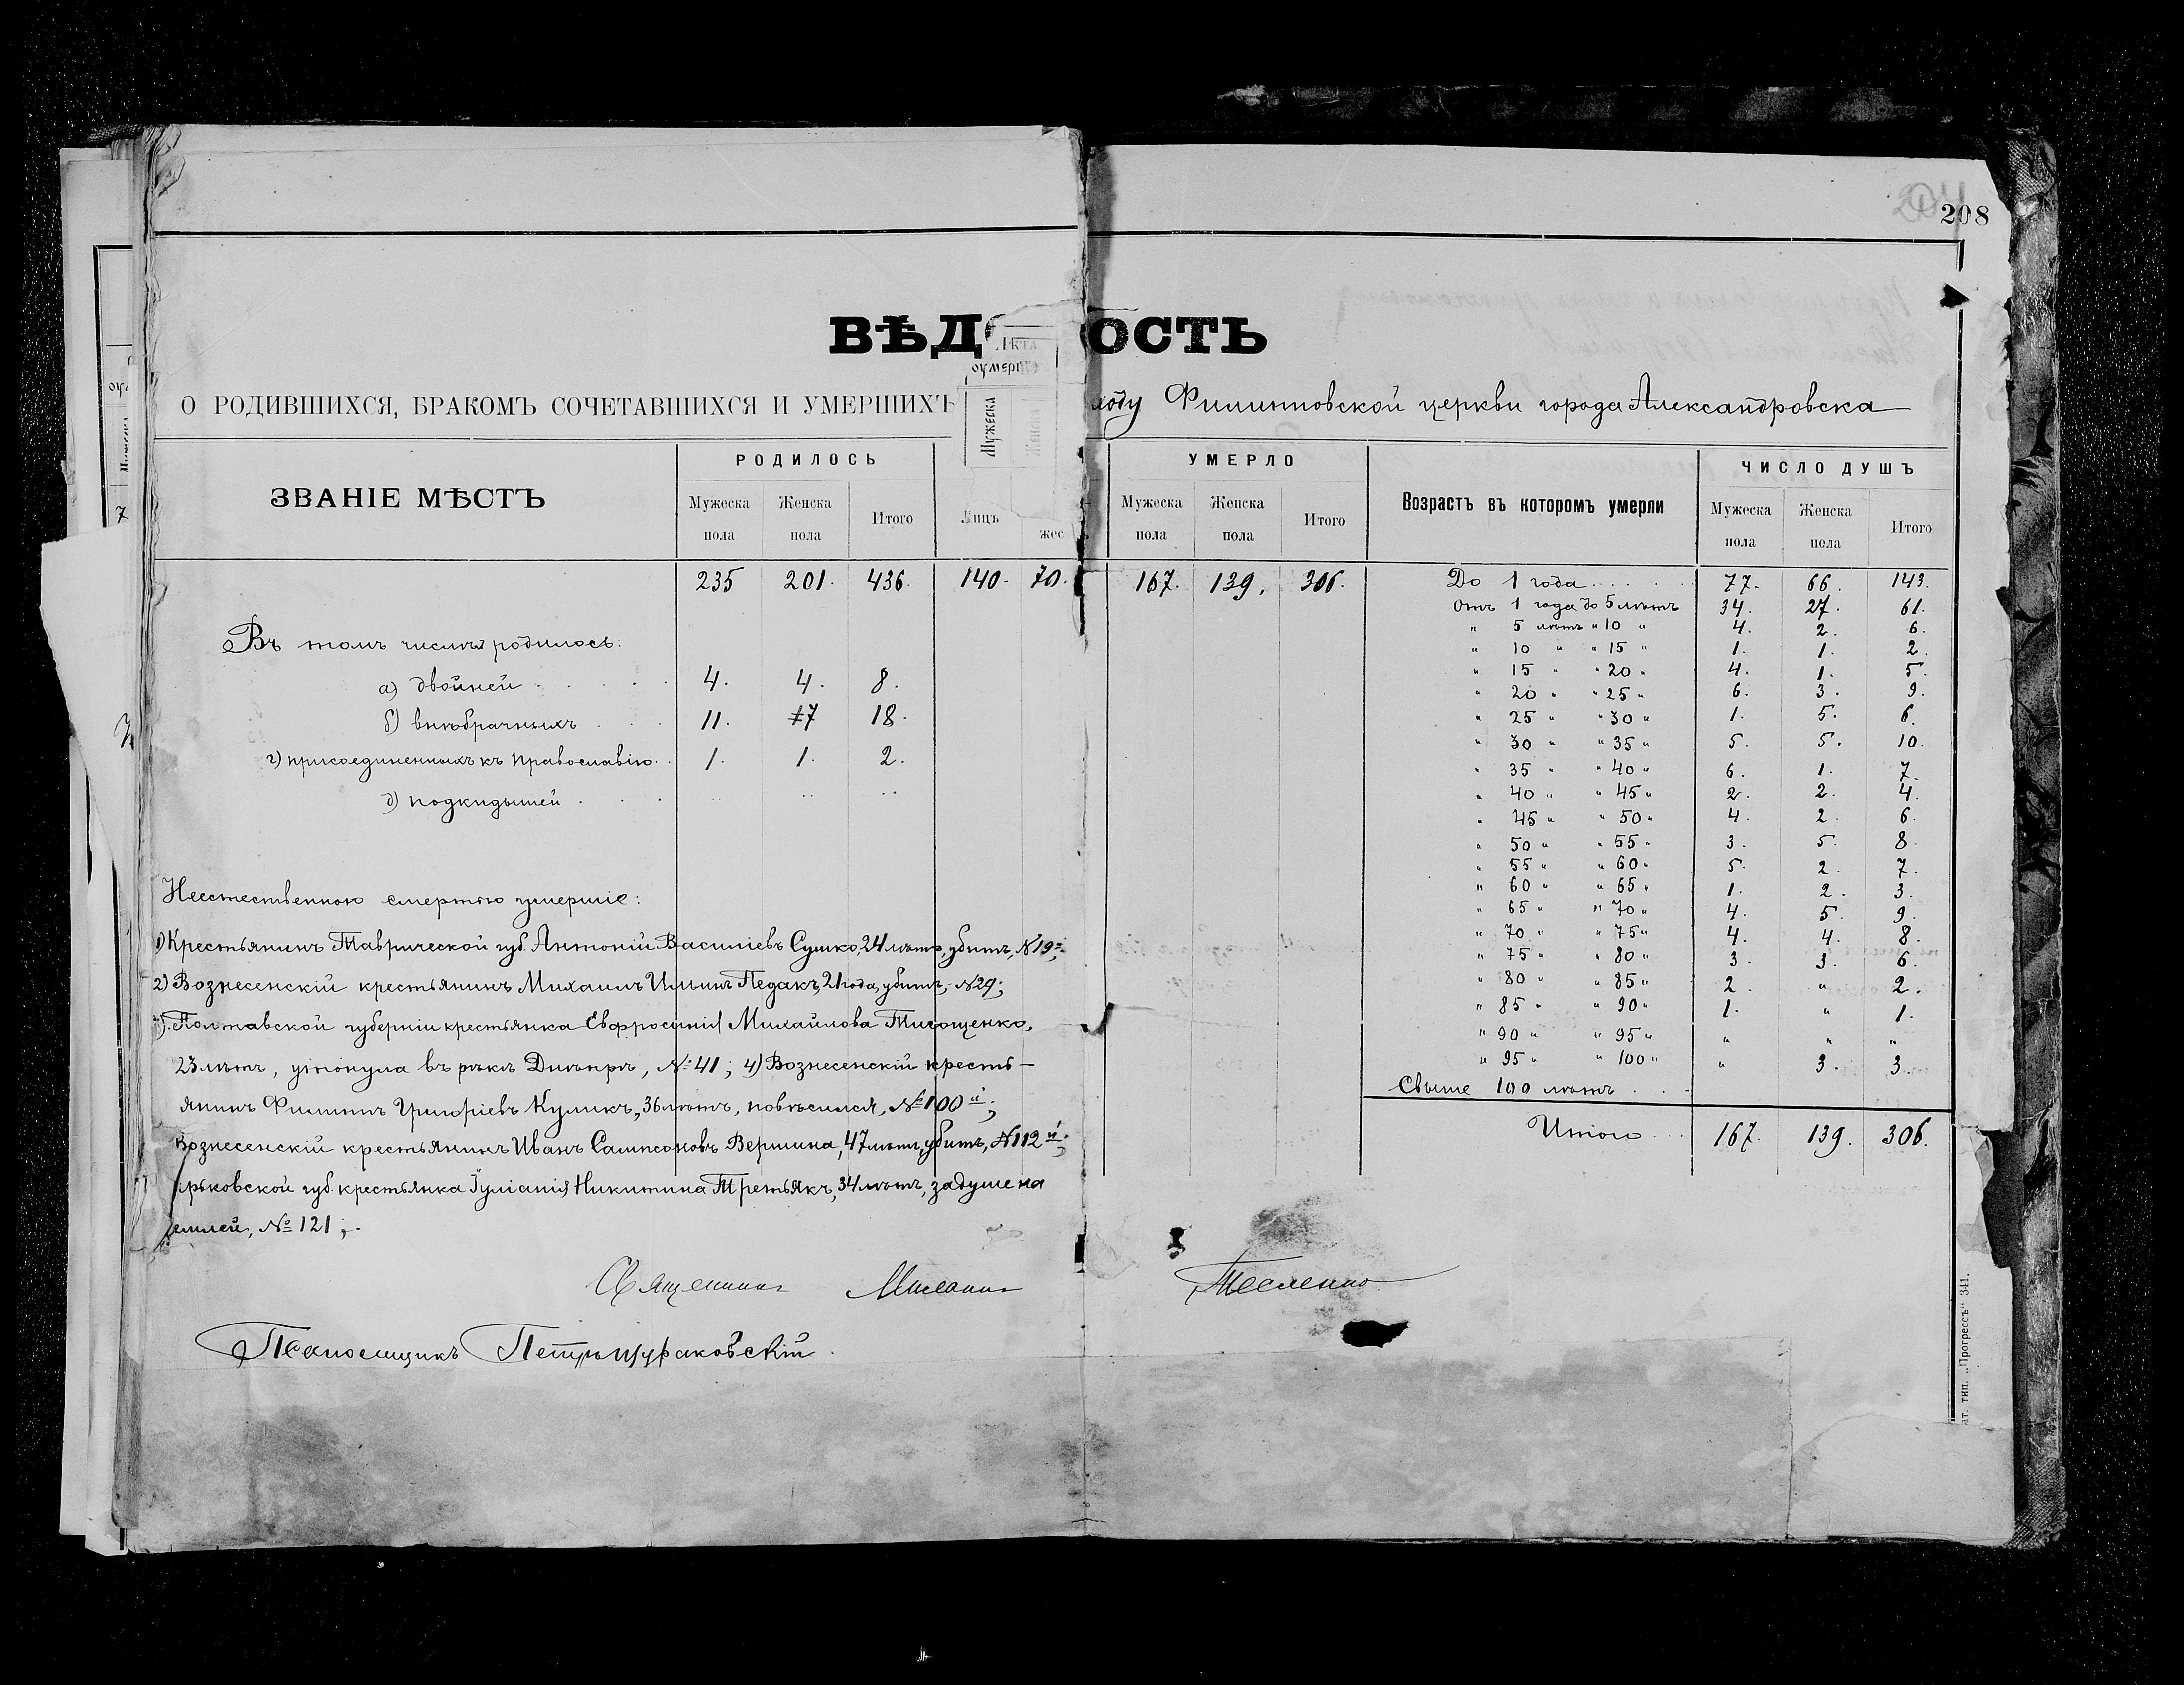 208
ВѢД ОСТЬ
Лѣта
оумерш
Мужеска
О РОДИВШИХСЯ, БРАКОМЪ СОЧЕТАВШИХСЯ И УМЕРШИХЪ ходу Филипповской церкви города Александровска
ЗВАНІЕ МѢСТЪ РОДИЛОСЬ УМЕРЛО Возрастъ въ которомъ умерли ЧИСЛО ДУШЪ
Мужеска пола Женска пола Итого Лицъ жес Мужеска пола Женска пола Итого Мужеска пола Женска пола Итого
235 201. 436. 140. 70. 167. 139. 306. До 1 года 77. 66. 143.
Отъ 1 года до 5 лѣтъ 34. 27. 61.
" 5 лѣтъ " 10 " 4. 2. 6.
Въ томъ числѣ родилось:
" 10 " " 15 " 1. 1. 2.
" 15 " " 20 " 4. 1. 5.
а) двойней 4. 4. 8.
" 20 " " 25 " 6. 3. 9.
б) внѣбрачныхъ 11. 7 18.
" 25 " " 30 " 1. 5. 6.
" 30 " " 35 " 5. 5. 10.
г) присоединенныхъ къ православію 1. 1. 2.
" 35 " " 40 " 6. 1. 7.
д) подкидышей .. .. ..
" 40 " " 45 " 2. 2. 4.
" 45 " " 50 " 4. 2. 6.
" 50 " " 55 " 3. 5. 8.
" 55 " " 60 " 5. 2. 7.
" 60 " " 65 " 1. 2. 3.
" 65 " " 70 " 4. 5. 9.
" 70 " " 75 " 4. 4. 8.
" 75 " " 80 " 3. 3. 6.
" 80 " " 85 " 2. " 2.
" 85 " " 90 " 1. " 1.
" 90 " " 95 " " " "
" 95 " " 100 " " 3. 3.
Свыше 100 лѣтъ
Итого 167. 139. 306.
Неестественною смертью умершіе:
1) Крестьянинъ Таврической губ. Антоній Василіевъ Сушко, 24 лѣтъ, убитъ, №19;
2) Вознесенскій крестьянинъ Михаилъ Ильинъ Педакъ, 21 года, убитъ, №29;
3) Полтавской губерніи крестьянка Евфросинія Михайлова Тимощенко,
23 лѣтъ, утонула въ рѣкѣ Днѣпрѣ, №41; 4) Вознесенскій кресть-
янинъ Филиппъ Григоріевъ Куликъ, 36 лѣтъ, повѣсился, №100й;
Вознесенскій крестьянинъ Иванъ Сампсоновъ Вершина, 47 лѣтъ, убитъ, №112й;
рьковской губ. крестьянка Іуліанія Никитина Третьякъ, 34 лѣтъ, задушена
землей, №121;
Священникъ Михаилъ Тесленко
Псаломщикъ Петръ Щураковскій.
ат. тип. „Прогрессъ" 341.